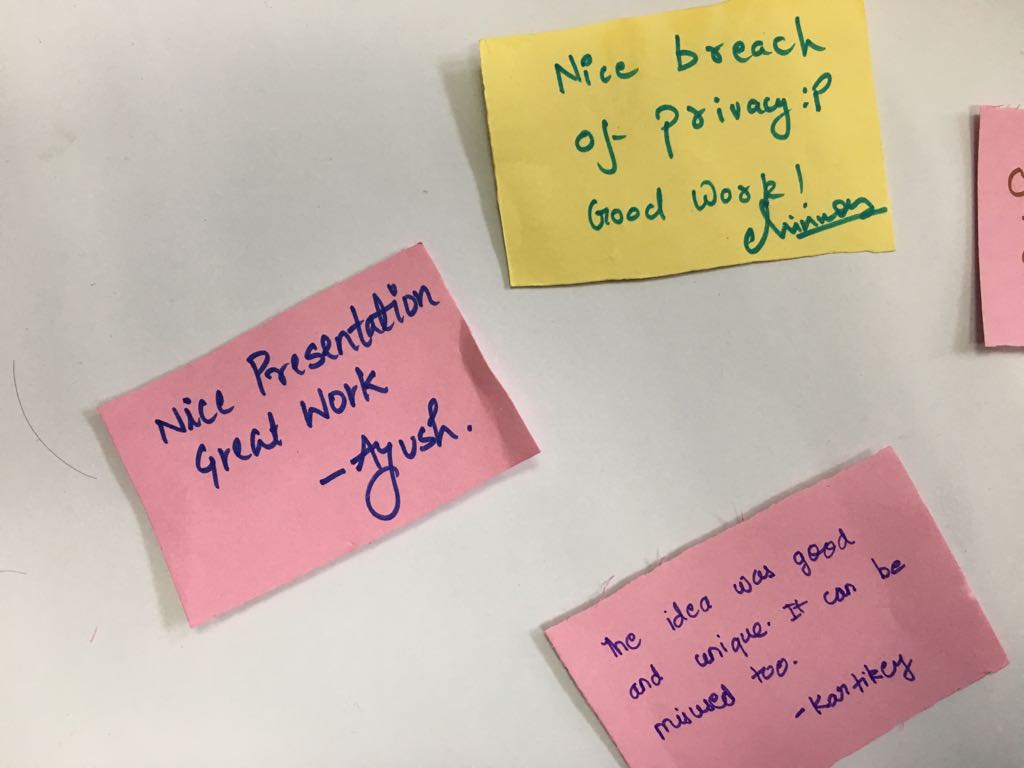 Nice breach
of privacy :P
Good Work!
Chinmay
Nice Presentation
Great Work
- Ayush.
The idea was good
and unique. It can be
misused too.
- Kartikey